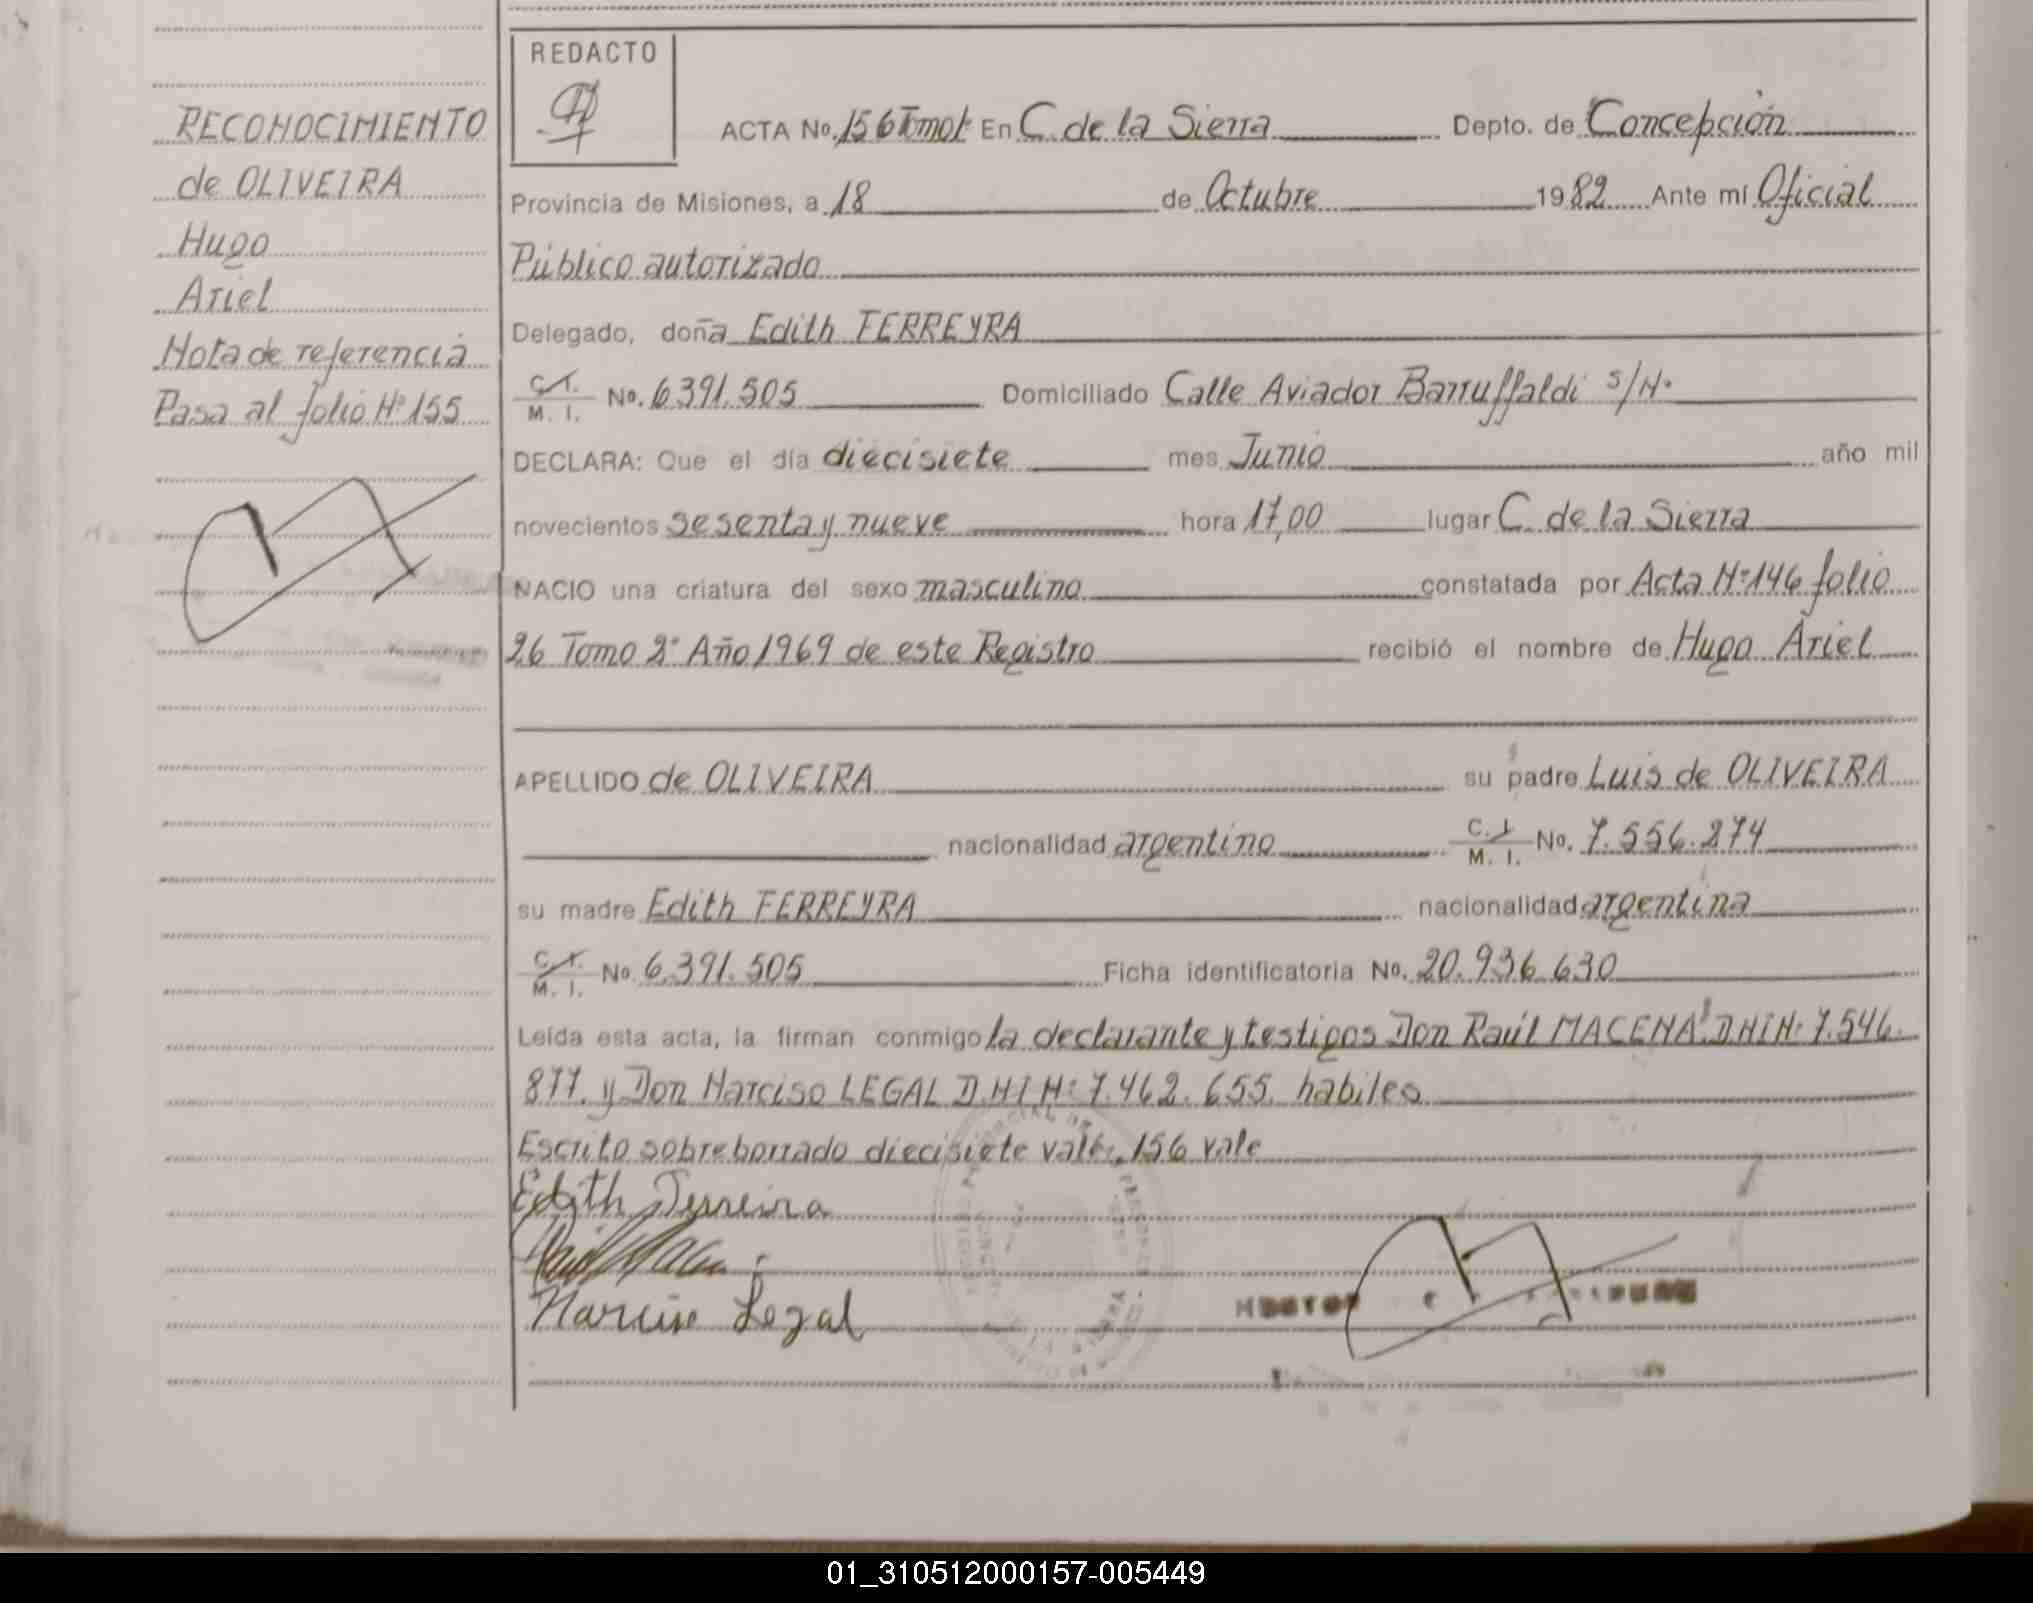 RECONOCIMIENTO
de OLIVEIRA
Hugo
Ariel
Nota de referencia
Pasa al folio Nº 155
REDACTO
ACTA No. 156 Tomo 1º En C. de la Sierra Depto. de Concepción
Provincia de Misiones, a 18 de Octubre 1982 Ante mí Oficial
Público autorizado
Delegado, doña Edith FERREYRA
C. I. / M. I. No. 6.391.505 Domiciliado Calle Aviador Barruffaldi s/Nº
DECLARA: Que el día diecisiete mes Junio año mil
novecientos sesenta y nueve hora 17,00 lugar C. de la Sierra
NACIO una criatura del sexo masculino constatada por Acta Nº 146 folio
26 Tomo 2º Año 1969 de este Registro recibió el nombre de Hugo Ariel
APELLIDO de OLIVEIRA su padre Luis de OLIVEIRA
nacionalidad argentino C. I. / M. I. No. 7.556.874
su madre Edith FERREYRA nacionalidad argentina
C. I. / M. I. No. 6.391.505 Ficha identificatoria No. 20.936.630
Leída esta acta, la firman conmigo la declarante y testigos Don Raúl MACENA D.N.I Nº 7.546.
877. y Don Narciso LEGAL D.N.I Nº 7.462.655. habiles
Escrito sobreborrado diecisiete vale, 156 vale
Edith Ferreira
Narciso Legal
01_310512000157-005449